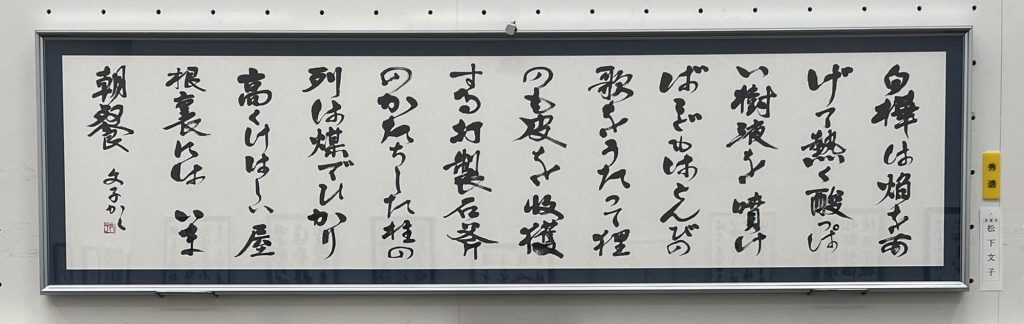 白樺は焰をあ
げて熱く酸っぱ
い樹液を噴け
ばこどもはとんびの
歌をうたって狸
の毛皮を収穫
する打製石斧
のかたちした柱の
列は煤でひかり
高くけはしい屋
根裏には いま
朝餐 文子かく
秀逸
松下文子